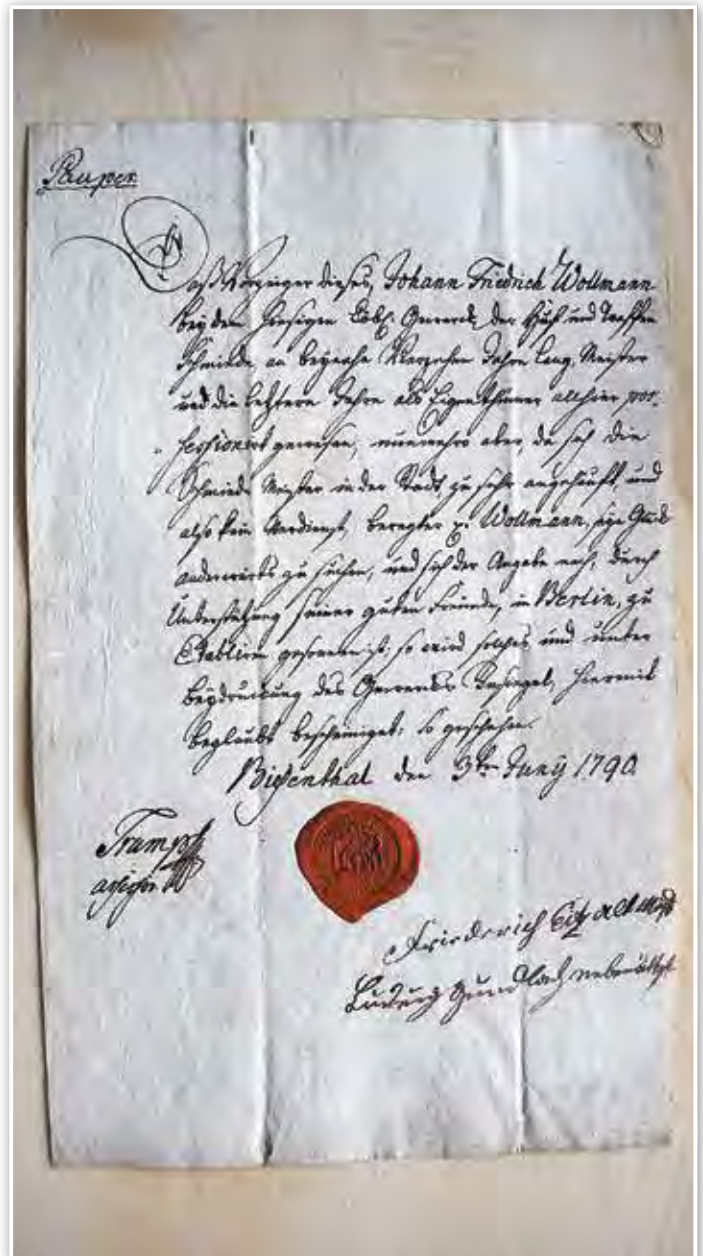 Pauper.
Daß Vorzeiger dieses, Johann Friedrich Wollmann
bey dem hiesigen Löbl. Gewerck der Huf und Waffen
Schmiede, an beynahe Vierzehen Jahre lang, Meister
und die letztern Jahre als Eigenthümer allhier pos-
sessionirt gewesen, nunmehro aber, da sich die
Schmiede Meister in der Stadt zu sehr angehäuft, und
also kein Verdienst, beregter p. Wollmann, sein Glück
anderwärts zu suchen, und sich der Angabe nach, durch
Unterstützung seiner guten Freunde, in Berlin, zu
Etabliren gesonnen ist; so wird solches und unter
beydruckung des Gewercks Insiegel, hiermit
beglaubt bescheiniget; so geschehen.
Biesenthal den 3ten Juny 1790.
Trumpf
Friederich Altmeist
Ludwig Gundlach